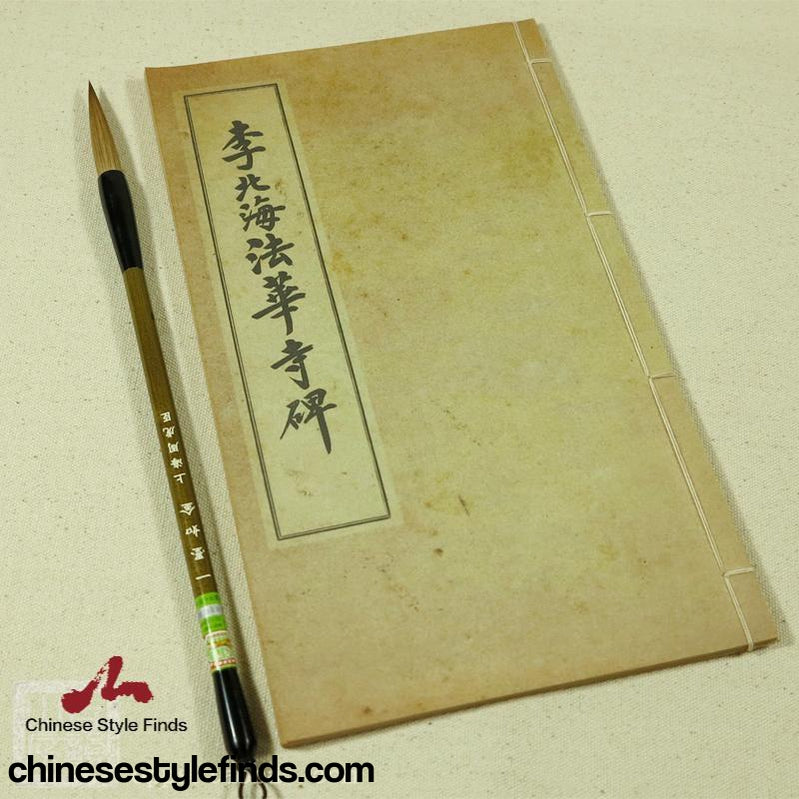 李北海法華寺碑
一墨如金 上海周虎臣
Chinese Style Finds
chinesestylefinds.com